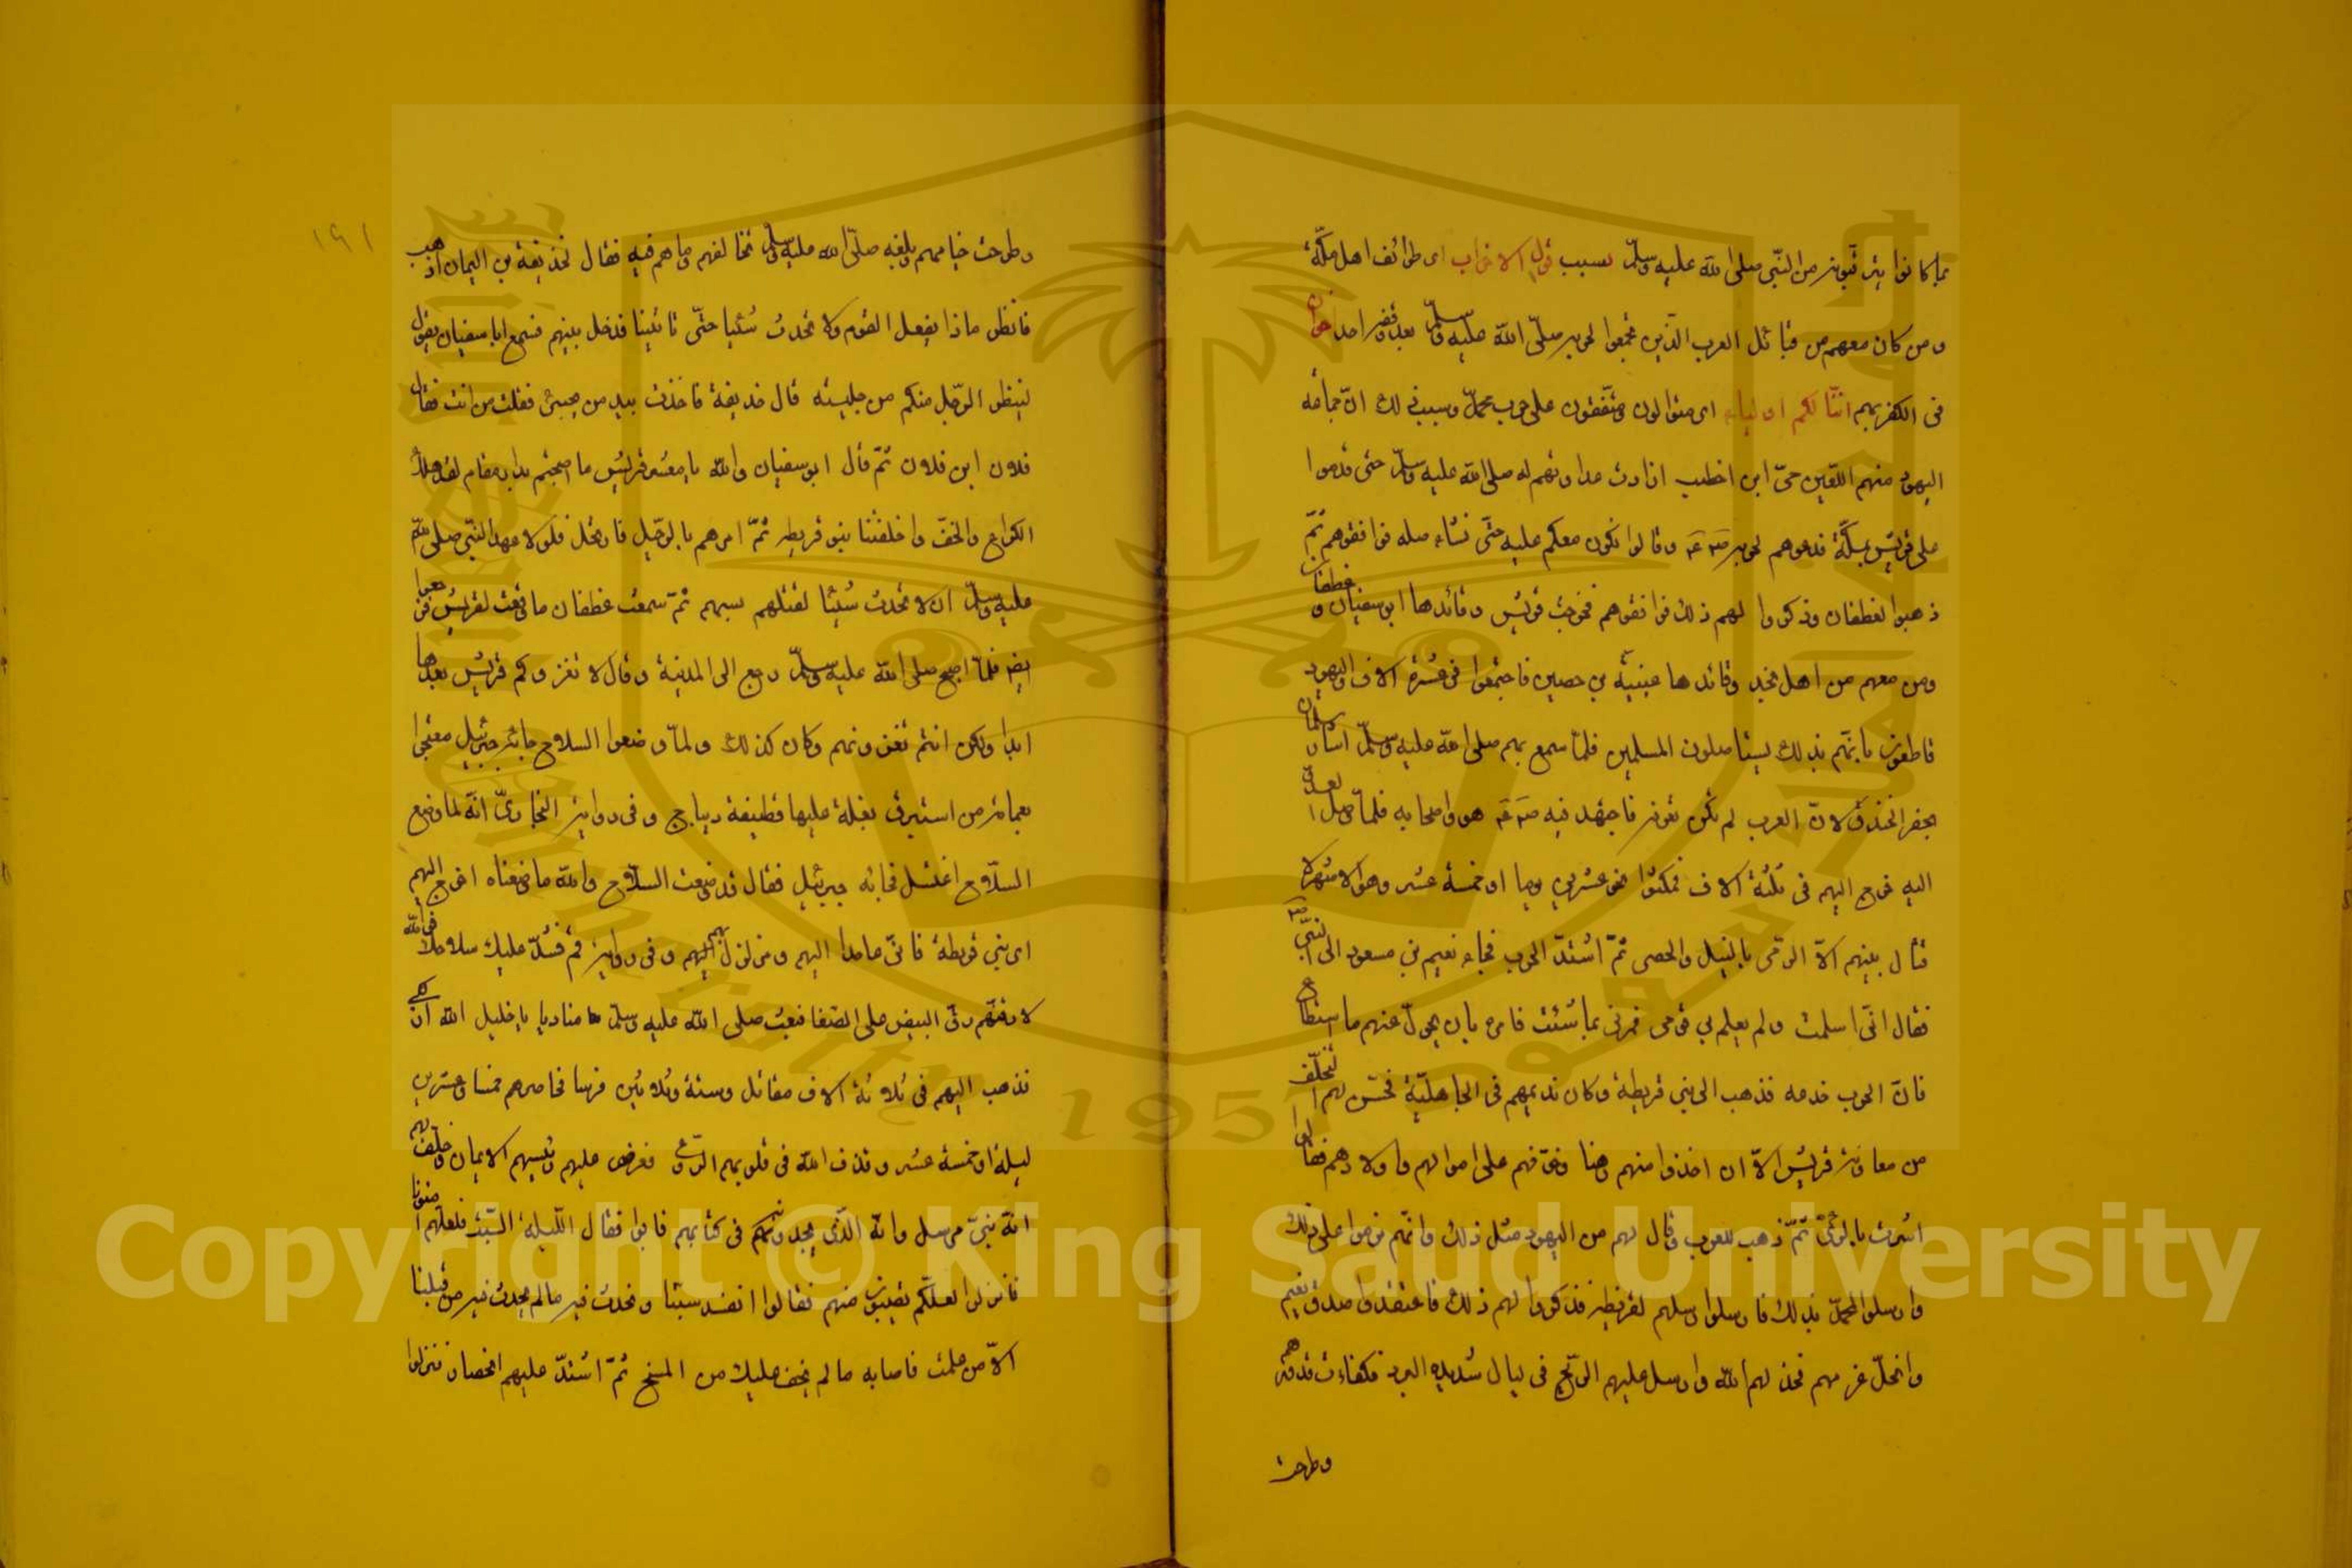 بما كانوا يترقبونه من النبي صلى الله عليه وسلم بسبب قول الاحزاب اى طوائف اهل مكة
ومن كان معهم من قبائل العرب الذين تجمعوا لحربه صلى الله عليه وسلم بعد وقعة احد اخوان
فى الكفر بهم انا لكم اولياء اى متوالون ومتفقون على حرب محمد وسبب ذلك ان جماعة
اليهود منهم اللعين حيى ابن اخطب ازادت عداوتهم له صلى الله عليه وسلم حتى قدموا
على قريش بمكة فدعوهم لحربه وقالوا نكون معكم عليه حتى نستأصله فوافقوهم ثم
ذهبوا لغطفان وذكروا لهم ذلك فوافقوهم فخرجت قريش وقائدها ابو سفيان وغطفان
ومن معهم من اهل نجد وقائدها عيينة بن حصين فاجتمعوا فى عشرة الاف واليهود
بذلك ليستأصلون المسلمين فلما سمع بهم صلى الله عليه وسلم اشار سلمان
بحفر الخندق لان العرب لم تكن تعرفه فاجتهد فيه هو واصحابه فلما وصل العدو
اليه خرج اليهم فى ثلثة الاف فمكثوا نحو عشرين يوما او خمسة عشر وهو الاشهر لا
قتال بينهم الا الرمى بالنبل والحصى ثم اشتد الحرب فجاء نعيم بن مسعود الى النبى
فقال انى اسلمت ولم يعلم بى قومى فمرنى بما شئت فامره بان يحول عنهم ما استطاع
فان الحرب خدعه فذهب الى بنى قريظة وكان نديمهم فى الجاهلية فحسن لهم التخلف
من معاونة قريش الا ان اخذوا منهم رهنا وخوفهم على اموالهم واولادهم فقالوا
اشرت بالرأى ثم ذهب للعرب وقال لهم من اليهود مثل ذلك وانهم عزموا على ذلك
وارسلوا لمحمد بذلك فارسلوا رسلهم لقريظة فذكروا لهم ذلك فاعتقدوا صدق نعيم
وانحل عزمهم فخذلهم الله وارسل عليهم الريح فى ليال شديدة البرد فكفاءت قدورهم
وطرحت
١٩١
وطرحت خيامهم وبلغه صلى الله عليه وسلم تخالفهم وما هم فيه فقال لحذيفة بن اليمان اذهب
فانظر ماذا يفعل القوم ولا تحدث شيئا حتى تأتينا فدخل بينهم فسمع ابا سفيان يقول
لينظر الرجل منكم من جليسه قال حذيفة فاخذت بيد من بجنبى فقلت من انت فقال
فلان ابن فلان ثم قال ابو سفيان والله يا معشر قريش ما اصبحتم بدار مقام لقد هلك
الكراع والخف واخلفتنا بنو قريظه ثم امرهم بالرحيل فارتحل فلولا عهد النبى صلى الله
عليه وسلم ان لا تحدث شيئا لقتلهم بسهم ثم سمعت غطفان ما وقعت لقريش فرجعوا
ايضا فلما اصبح صلى الله عليه وسلم رجع الى المدينة وقال لا تغزوكم قريش بعدها
ابدا ولكن انتم تغزونهم وكان كذلك ولما وضعوا السلاح جائه جبرئيل معتجرا
بعمامة من استبرق بغلة عليها قطيفة ديباج وفى رواية البخارى انه لما وضع
السلاح اغتسل فجائه جبرئيل فقال قد وضعت السلاح والله ما وضعناه اخرج اليهم
اى بنى قريظة فانى عامد اليهم ومزلزل بهم وفى رواية قم فشد عليك سلاحك فوالله
لادقنهم دق البيض على الصفا فبعث صلى الله عليه وسلم مناديا يا خليل الله اركبى
فذهب اليهم فى ثلاثة الاف مقاتل وستة وثلاثين فرسا فحاصرهم خمسا وعشرين
ليلة او خمسة عشر وقذف الله فى قلوبهم الرعب فعرض عليهم رئيسهم الايمان وحلف لهم
انه نبى مرسل وانه الذى يجدونه فى كتابهم فابوا فقال الليلة السبت فلعلهم امنونا
فانزلوا لعلكم تصيبون منهم فقالوا انفسد سبتنا ونحدث فيه ما لم يحدث فيه من قبلنا
الا من علمت فاصابه ما لم يخف عليك من المسخ ثم اشتد عليهم الحصار فنزلوا
Copyright © King Saud University
1957